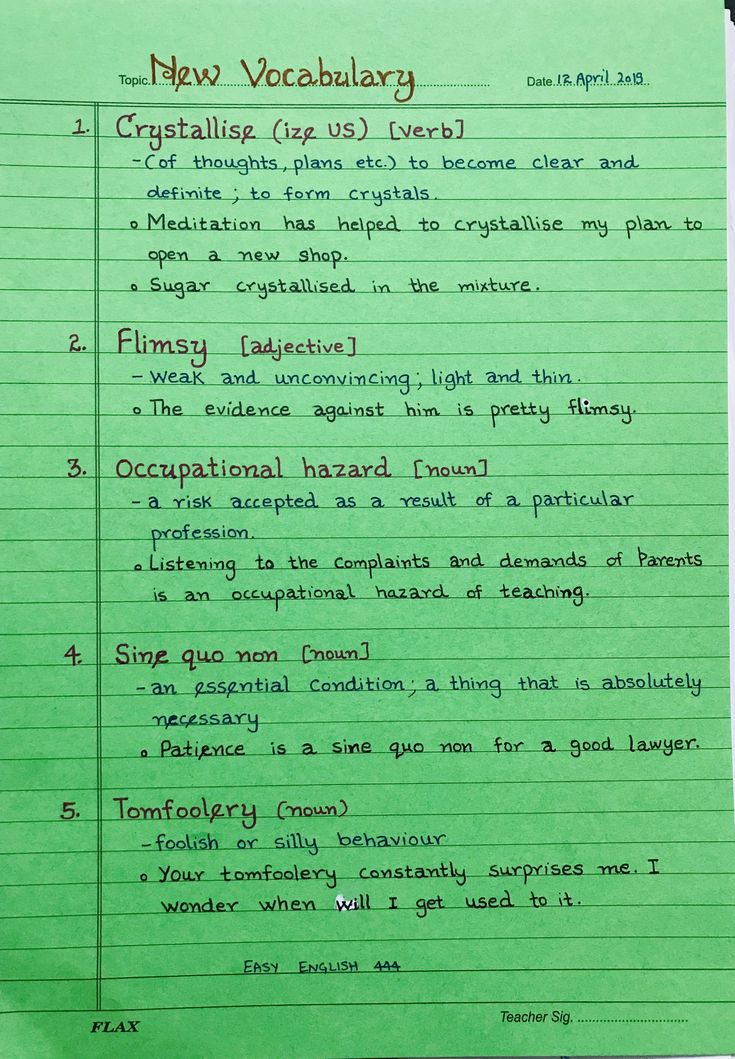 Topic. New Vocabulary Date. 12 April 2019
1. Crystallise (ize US) [verb]
- (of thoughts, plans etc.) to become clear and
definite; to form crystals.
o Meditation has helped to crystallise my plan to
open a new shop.
o Sugar crystallised in the mixture.
2. Flimsy [adjective]
- weak and unconvincing; light and thin.
o The evidence against him is pretty flimsy.
3. Occupational hazard [noun]
- a risk accepted as a result of a particular
profession.
o Listening to the complaints and demands of Parents
is an occupational hazard of teaching.
4. Sine quo non [noun]
- an essential condition; a thing that is absolutely
necessary
o Patience is a sine quo non for a good lawyer.
5. Tomfoolery (noun)
- foolish or silly behaviour
o Your tomfoolery constantly surprises me. I
wonder when will I get used to it.
EASY ENGLISH 444
FLAX Teacher Sig.